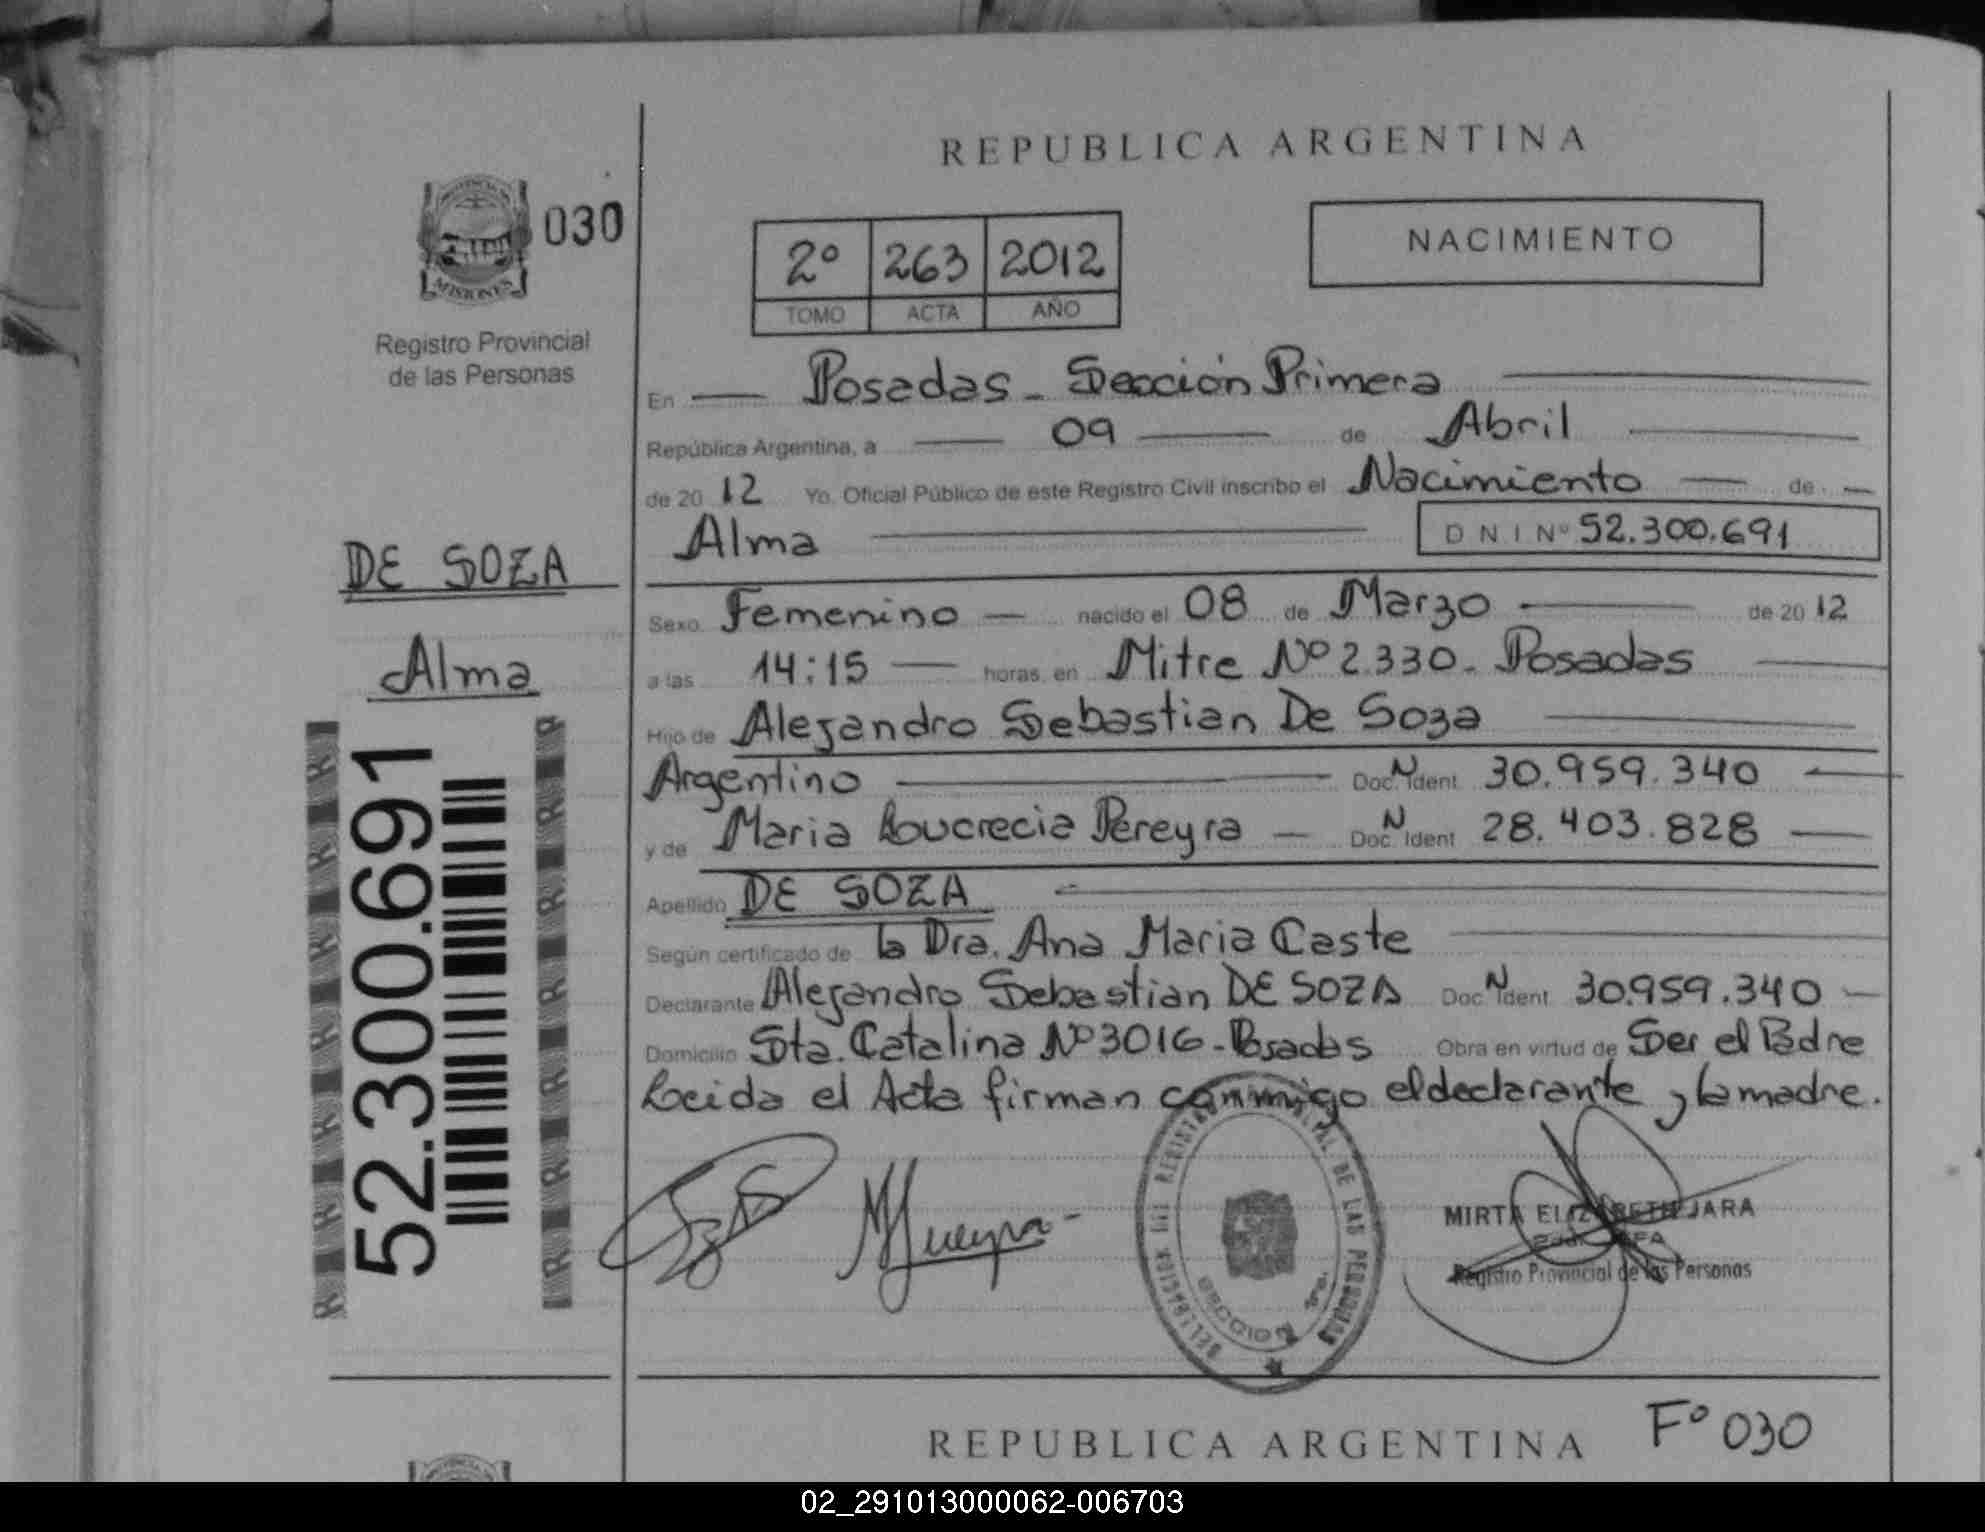 REPUBLICA ARGENTINA
PROVINCIA DE
MISIONES
030
Registro Provincial
de las Personas
2º 263 2012
TOMO ACTA AÑO
NACIMIENTO
En Posadas - Sección Primera
República Argentina, a 09 de Abril
de 20 12 Yo, Oficial Público de este Registro Civil inscribo el Nacimiento de
Alma DNI Nº 52.300.691
DE SOZA
Alma
Sexo Femenino nacido el 08 de Marzo de 20 12
a las 14:15 horas, en Mitre Nº 2.330 - Posadas
Hijo de Alejandro Sebastian De Soza
Argentino Doc. N Ident 30.959.340
y de Maria Loucrecia Pereyra Doc. N Ident 28.403.828
Apellido DE SOZA
Según certificado de la Dra. Ana Maria Caste
Declarante Alejandro Sebastian DE SOZA Doc. N Ident 30.959.340
Domicilio Sta. Catalina Nº 3016 - Posadas Obra en virtud de Ser el Padre
Leida el Acta firman conmigo el declarante y la madre.
52.300.691
R R R R R R
R R R R R R
MIRTA ELIZABETH JARA
Registro Provincial de las Personas
DE LAS PERSONAS
REPUBLICA ARGENTINA
Fº 030
02_291013000062-006703